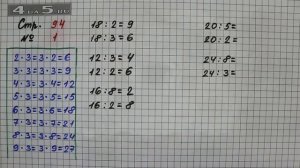 Стр. 94
№ 1
2·3=3·2=6
3·3=3·3=9
4·3=3·4=12
5·3=3·5=15
6·3=3·6=18
7·3=3·7=21
8·3=3·8=24
9·3=3·9=27
18:2=9
18:3=6
12:3=4
12:2=6
16:8=2
16:2=8
20:5=
20:2=
24:8=
24:3=